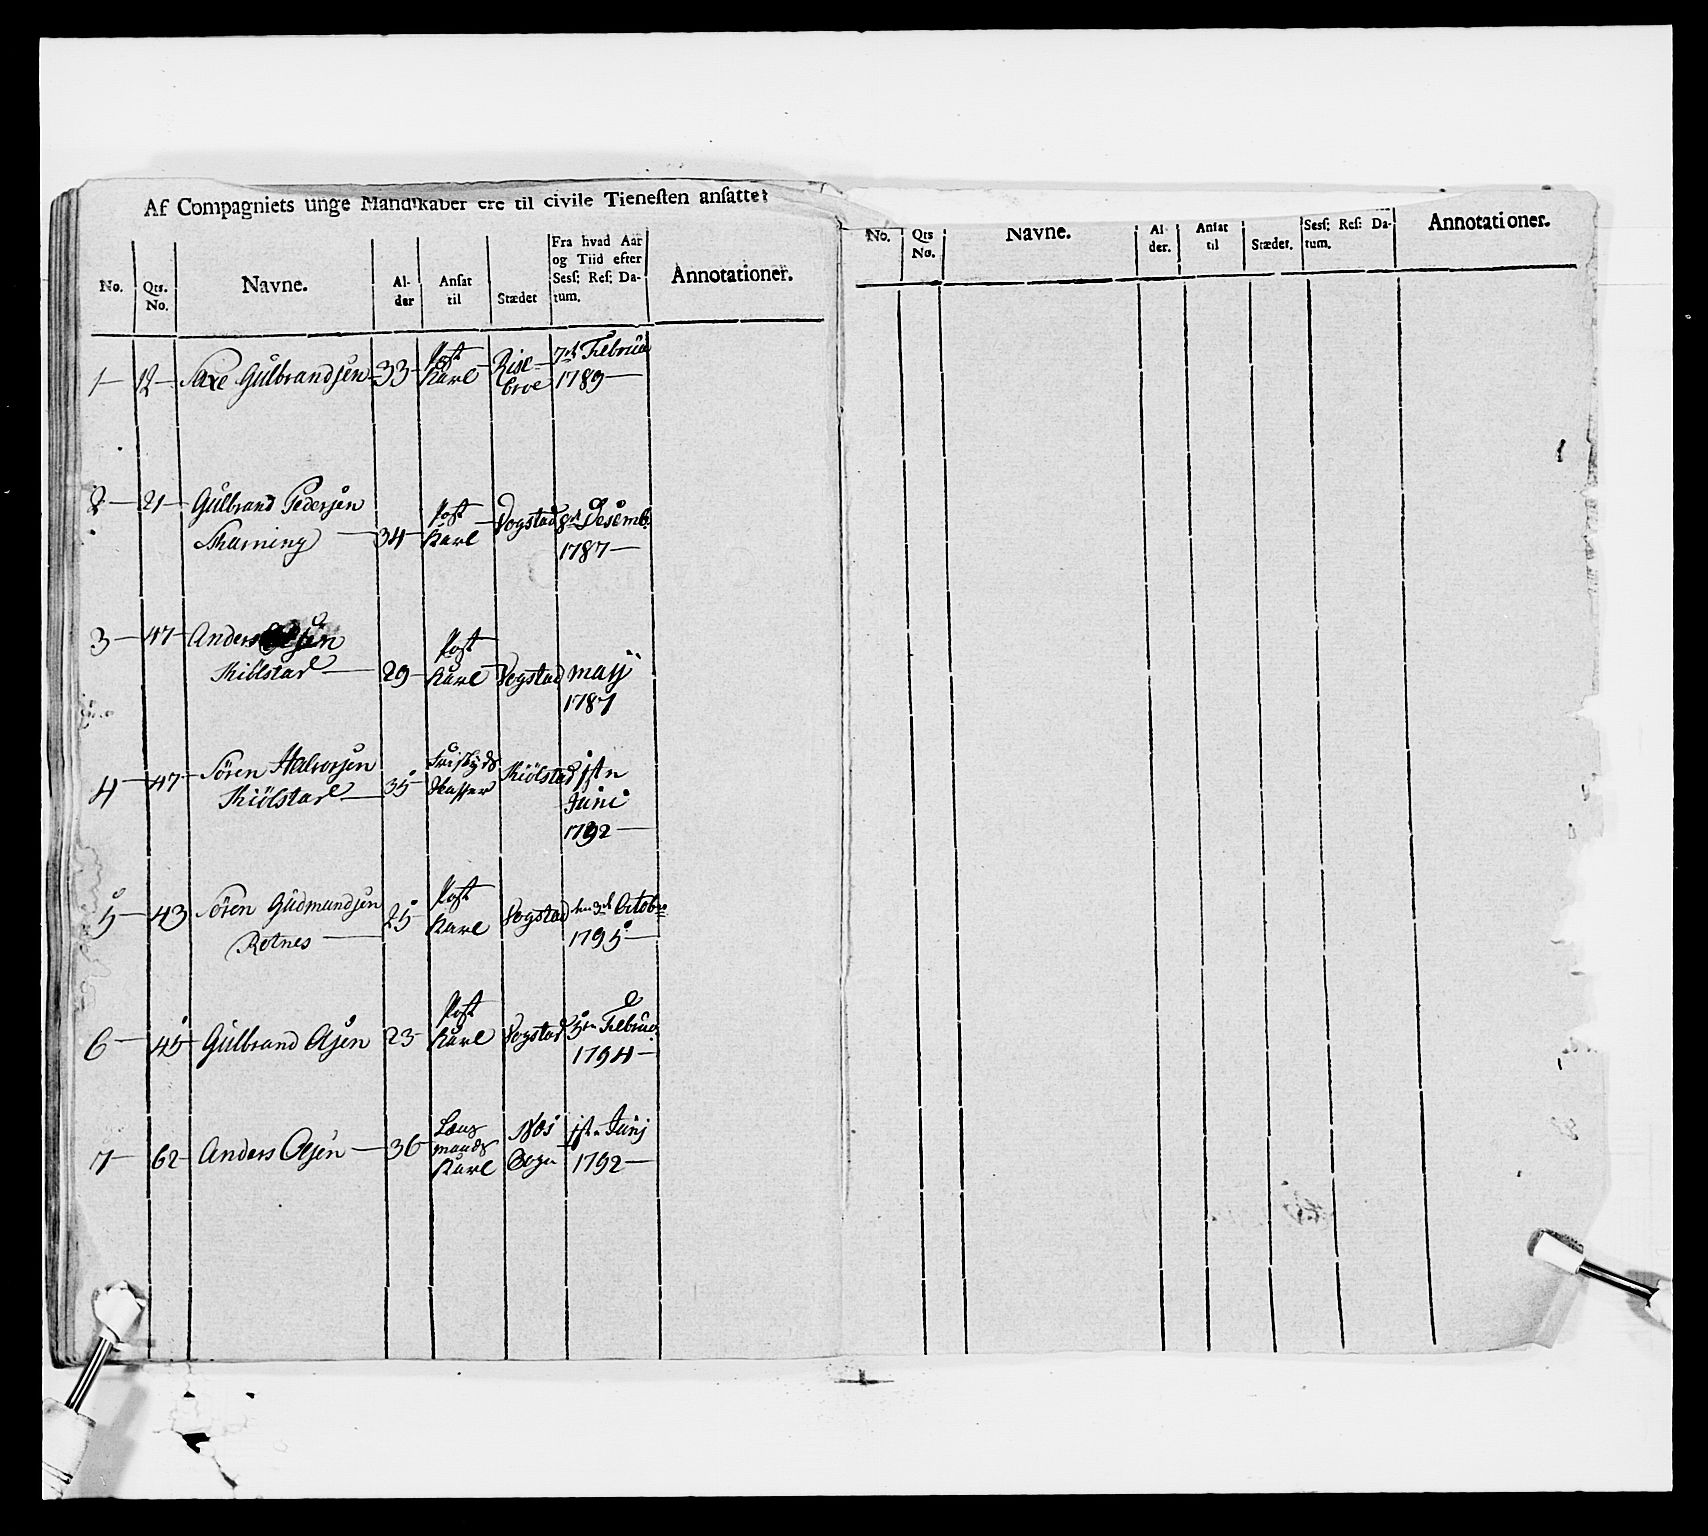 Af Compagniets unge Mandſkaber ere til civile Tieneſten anſatte:
No. Qts. No. Navne. Al- der Anſat til Stædet Fra hvad Aar og Tiid efter Seſſ: Reſ: Da- tum. Annotationer.
1 12 Saxe Gulbrandsen 33 Post Karl Rise broe 7de Februar 1789
2 21 Gulbrand Pedersen
Skarning 34 Post Karl Vogstad 8de Desemb: 1787
3 47 Anders Olsen
Kiölstad 29 Post Karl Vogstad maij 1787
4 47 Sören Halvorsen
Kiölstad 35 Skafter Kiölstad 1ste Juni 1792
5 43 Sören Gudmundsen
Rotnes 25 Post Karl Vogstad den 3de Octobr 1795
6 45 Gulbrand Olsen 23 Post Karl Vogstad 5te Februar 1794
7 62 Anders Olsen 36 Læns mands Karl Næs Sogn 1ste Junj 1792
No. Qts No. Navne. Al- der. Anſat til Stædet. Seſſ: Reſ: Da- tum. Annotationer.